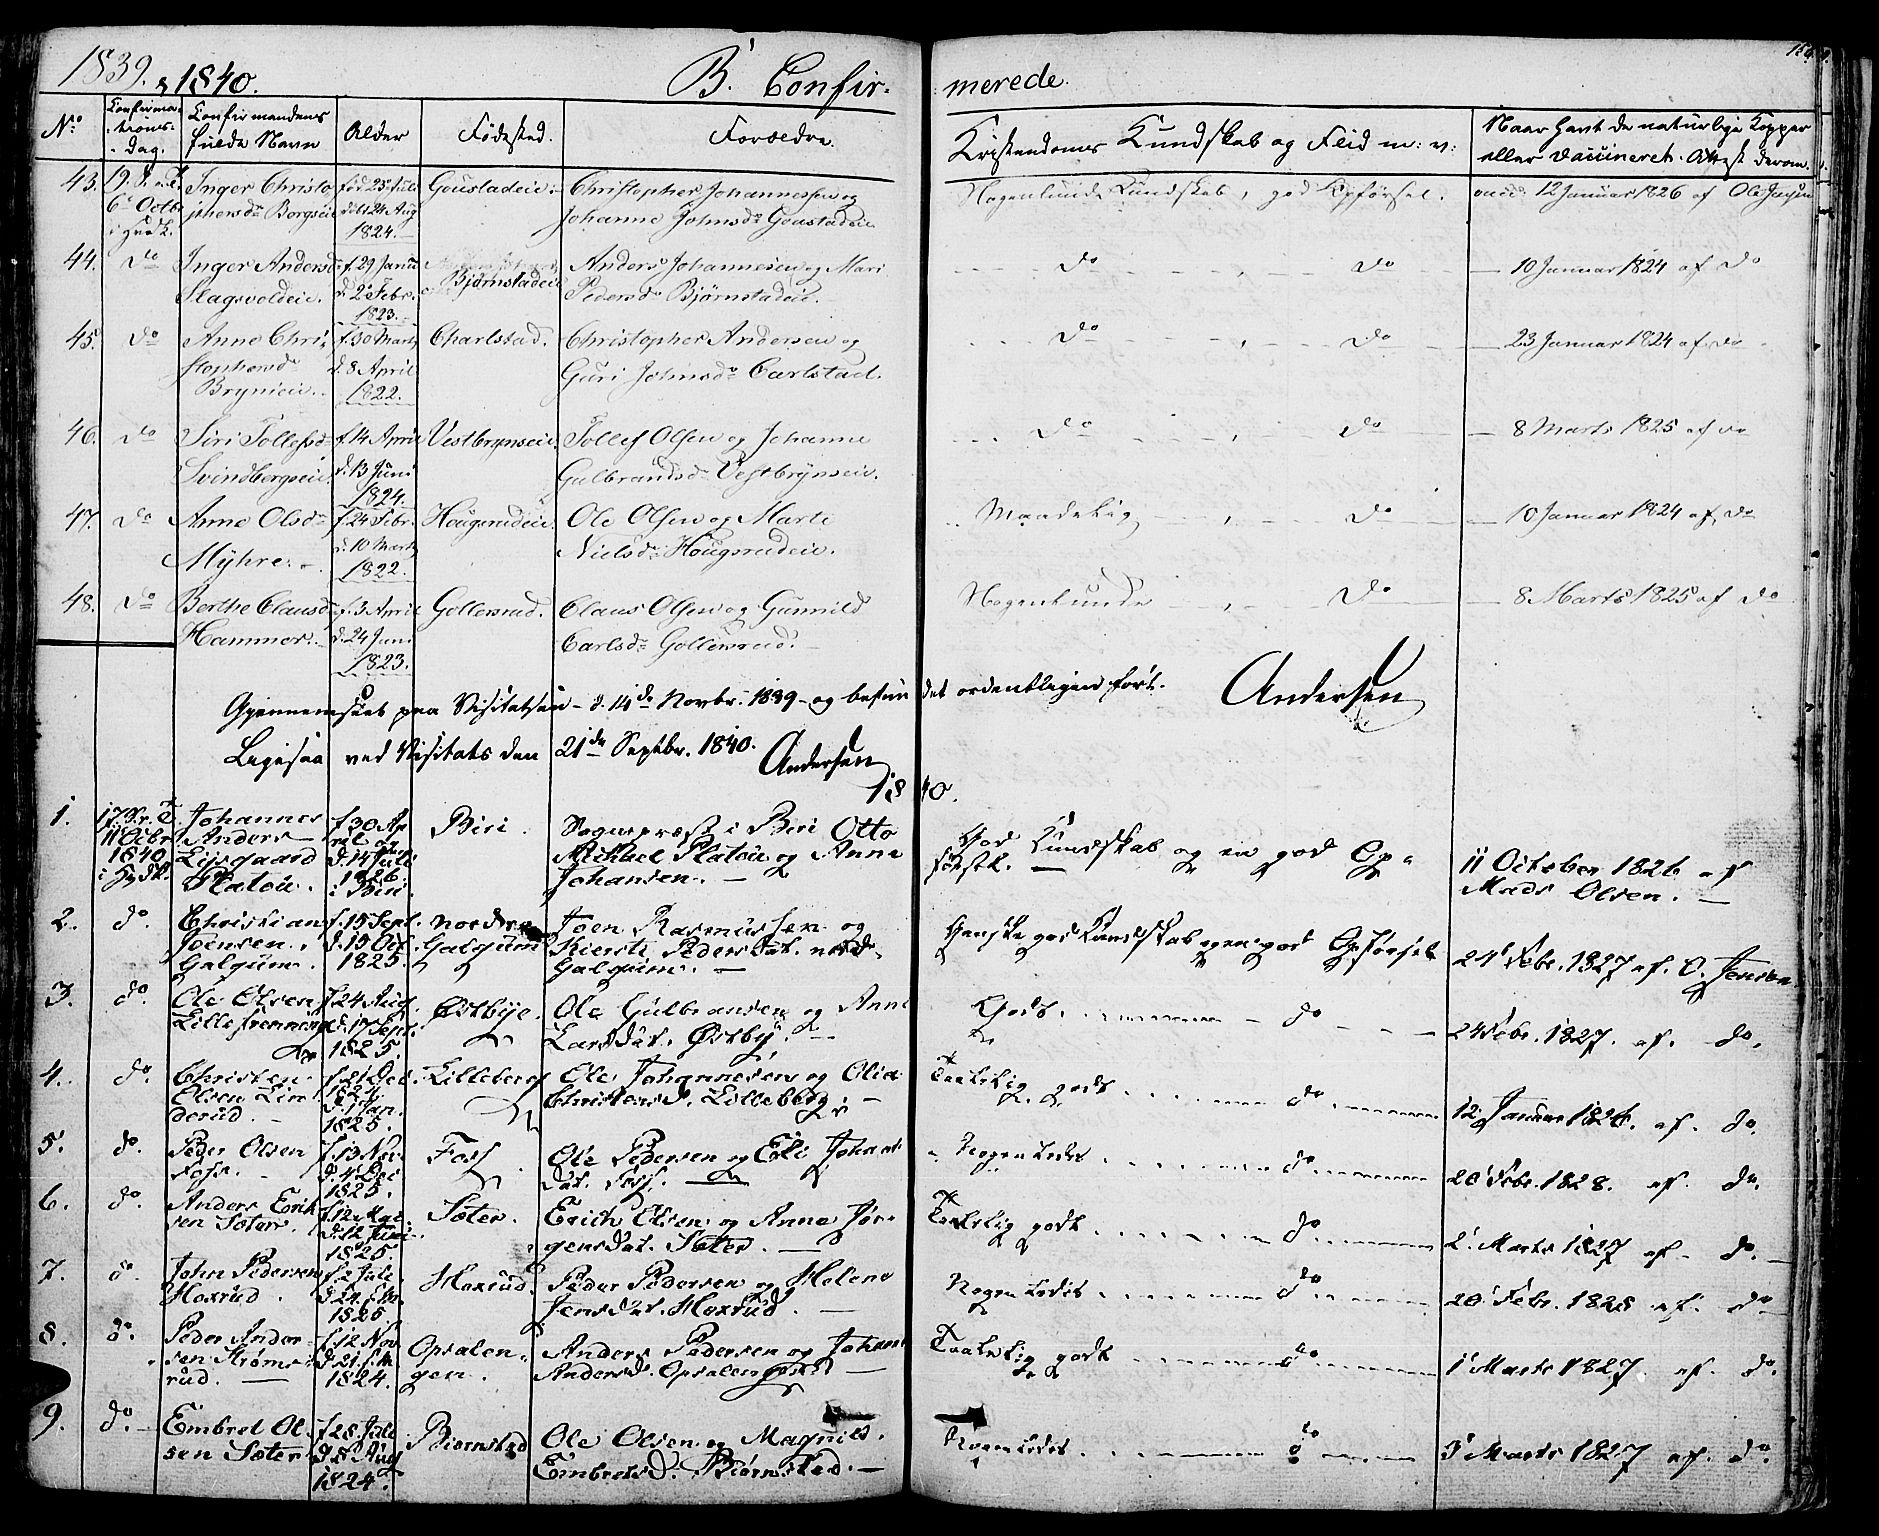 1839. & 1840.
B. Confir-
merede.
No
Confirma-
tions-
Dag.
Confirmandens
fulde Navn
Alder
Fødested.
Forældre.
Kristendoms Kundskab og Flid m: v:
Naar havt de naturlige Kopper
eller vaccineret. Attest derom.
43.
6te Octbr
Inger Christo
phersdr Borgseie
fød 28 Juli
døbt 24 Aug
1824.
Goustadeie.
Christopher Johannessen og
Johanne Johnsdr Goustadeie
Nogenlunde Kundskab, god Opførsel.
vacc. 12 Januar 1826 af Ole Jensen
44. do
Inger Andersd.
Slagsvoldeie.
f. 29 Januar
d. 2 Febr.
1823.
Bjørnstadeie
Anders Johannesen og Mari
Pedersdr Bjørnstadeie.
do do
10 Januar 1824 af do
45. do
Anne Chri-
stophersdr
Brynieie.
f. 30 Marts
d. 8 April
1822.
Charlstad.
Christopher Andersen og
Guri Johnsdr Carlstad.
do do
23 Januar 1824 af do
46. do
Siri Tollefsdr
Svindbergseie
f. 14 April
d. 13 Juni
1824.
Vestbrynseie
Tollef Olsen og Johanne
Gulbrandsdr Vestbrynseie.
do do
8 Marts 1825 af do
47. do
Anne Olsdr
Myhre.
f. 24 Febr.
d. 10 Marts
1822.
Hougsrudeie.
Ole Olsen og Marte
Nielsdr Hougsrudeie.
Maadelig do
10 Januar 1824 af do
48. do
Berthe Clausd
Hammer.
f. 3 April
d. 24 Juni
1823.
Gollersrud.
Claus Olsen og Gunnild
Carlsdr Gollersrud.
Nogenlunde do
8 Marts 1825 af do
Gjennemseet paa Visitatsen d. 14de Novbr. 1839 og befundet ordentligen ført.
Andersen
Ligesaa ved Visitats den 21de Septbr. 1840. Andersen
1840.
1.
11 Octbr
1840
Johannes
Anders
Lysgaard
Platou.
f. 30 Ap
ril og
d. 14 Juli
1826.
i Biri
Biri.
Sognepræst i Biri Otto
Michael Platou og Anna
Johansen.
God Kundskab og en god Op-
førsel.
11 October 1826 af
Mads Olsen.
2. do.
Christian
Joensen
Galgum.
f. 15 Sept.
d. 15 Oct.
1825.
nordre
Galgum
Joen Rasmussen og
Kiersti Pedersdat. nord.
Galgum.
Ganske god Kundskab og en god Opførsel
24 Febr. 1827 af. O. Jensen.
3. do.
Ole Olsen
Lillestrømningen
f. 24 Aug
d. 17 Sept.
1825.
Østbye.
Ole Gulbransen og Anne
Larsdat. Østby.
Godt do
24 Febr. 1827. af. do.
4. do.
Christen
Olsen Lin
derud.
f. 21 Dec.
1824
d. 1 Jan.
1825.
Lilleberg
Ole Johannesen og Olia
Christensd. Lilleberg.
Taalelig godt do
12 Januar 1826. af. do.
5. do.
Peder Olsen
Foss.
f. 13 Nov.
d. 4 Dec
1825.
Foss
Ole Pedersen og Eli Johans
dat. Foss.
Nogenledes do
20 Febr. 1828. af. do.
6. do.
Anders Erik
sen Sæter.
f. 12 Mai
d. 12 Juni
1825.
Sæter.
Erich Olsen og Anne Jør-
gensdat. Sæter.
Taalelig godt do
2 Marts 1827 af do.
7. do.
John Pedersen
Moxrud.
f. 2 Juli
d. 24. s. M.
1825.
Moxrud.
Peder Pedersen og Helene
Jensdat. Moxrud.
Nogenledes do
20 Febr. 1828 af. do
8. do.
Peder Ander
sen Strøms
rud.
f. 12 Nov
d. 21. s. M.
1824.
Opsalen-
gen.
Anders Pedersen og Johane
Andersd. Opsalengen.
Taalelig godt do
1 Marts 1827. af. do.
9. do
Embret Ol.
sen Sæter
f. 28 Juli
d. 8 Aug
1824.
Biørnstad
Ole Olsen og Magnild.
Embretsd. Biørnstad.
Nogenledes do
3 Marts 1827 af. do.